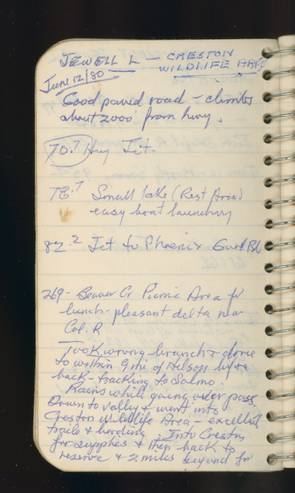 JEWELL L - CRESTON
WILDLIFE
June 12/80
Good paved road - climbs
about 2000' from hwy.
70.7 Hwy Jct.
78.7 Small lake (Rest Area)
easy boat launching
82.2 Jct to Phoenix
269 - Beaver Cr Picnic Area for
lunch - pleasant delta near
Col. R
Took wrong branch & drove
to within 9 mi of Nelson before
back-tracking to Salmo.
Rains while going over pass
Down to valley & went into
Creston Wildlife Area - excellent
trails & . Into Creston
for supplies & then back to
reserve & 2 miles beyond for